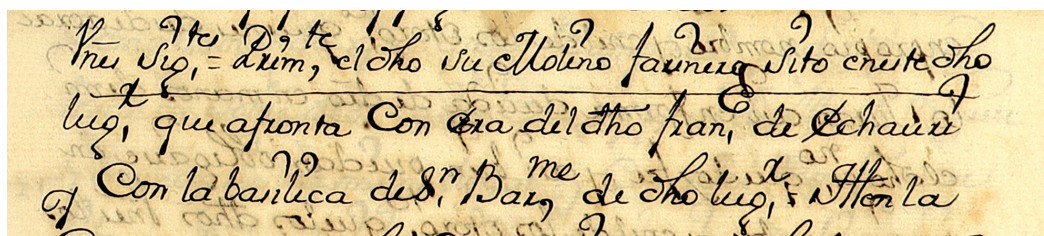 vnes sig,tes = Prim,te el dho su Molino farinero sito en este dho
lug,r que afronta Con Era del dho fran,co de Echauri
Con la basilica de Sn, Bar,me de dho lug,r = Itten la